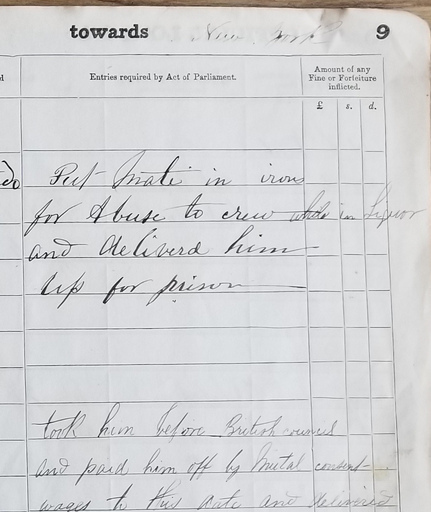 towards New York 9
d
Entries required by Act of Parliament.
Amount of any
Fine or Forfeiture
inflicted.
£ s. d.
do
Put Mate in irons
for Abuse to crew while in liquor
and deliverd him
up for prison
took him before British councel
and paid him off by mutal consent
wages to this date and delivered